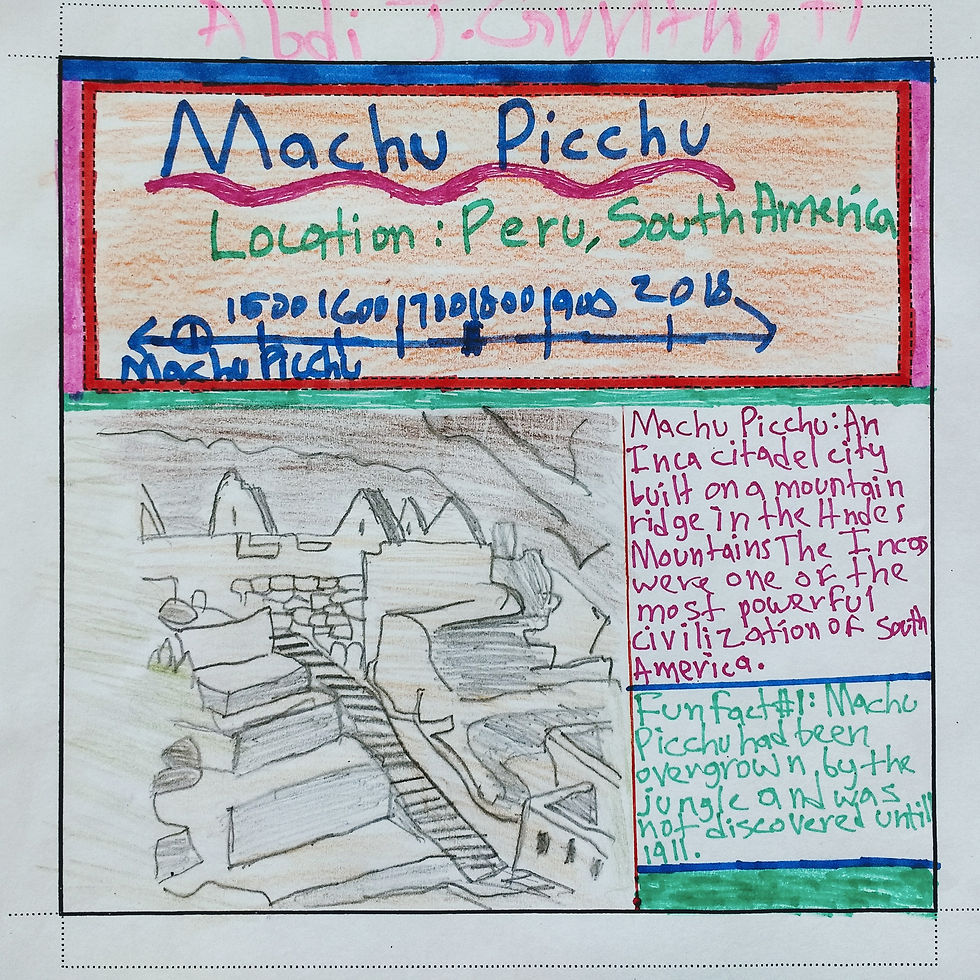 Abdi J.
Machu Picchu
Location: Peru, South America
1500 1600 1700 1800 1900 2018
Machu Picchu
Machu Picchu: An
Inca citadel city
built on a mountain
ridge in the Andes
Mountains The Incas
were one of the
most powerful
civilization of South
America.
Fun Fact #1: Machu
Picchu had been
overgrown by the
jungle and was
not discovered until
1911.